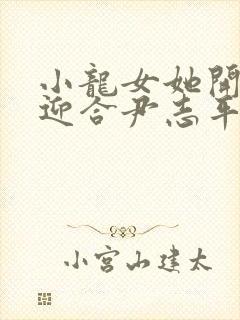 小龍女她開
迎合尹志平
小宮山建太